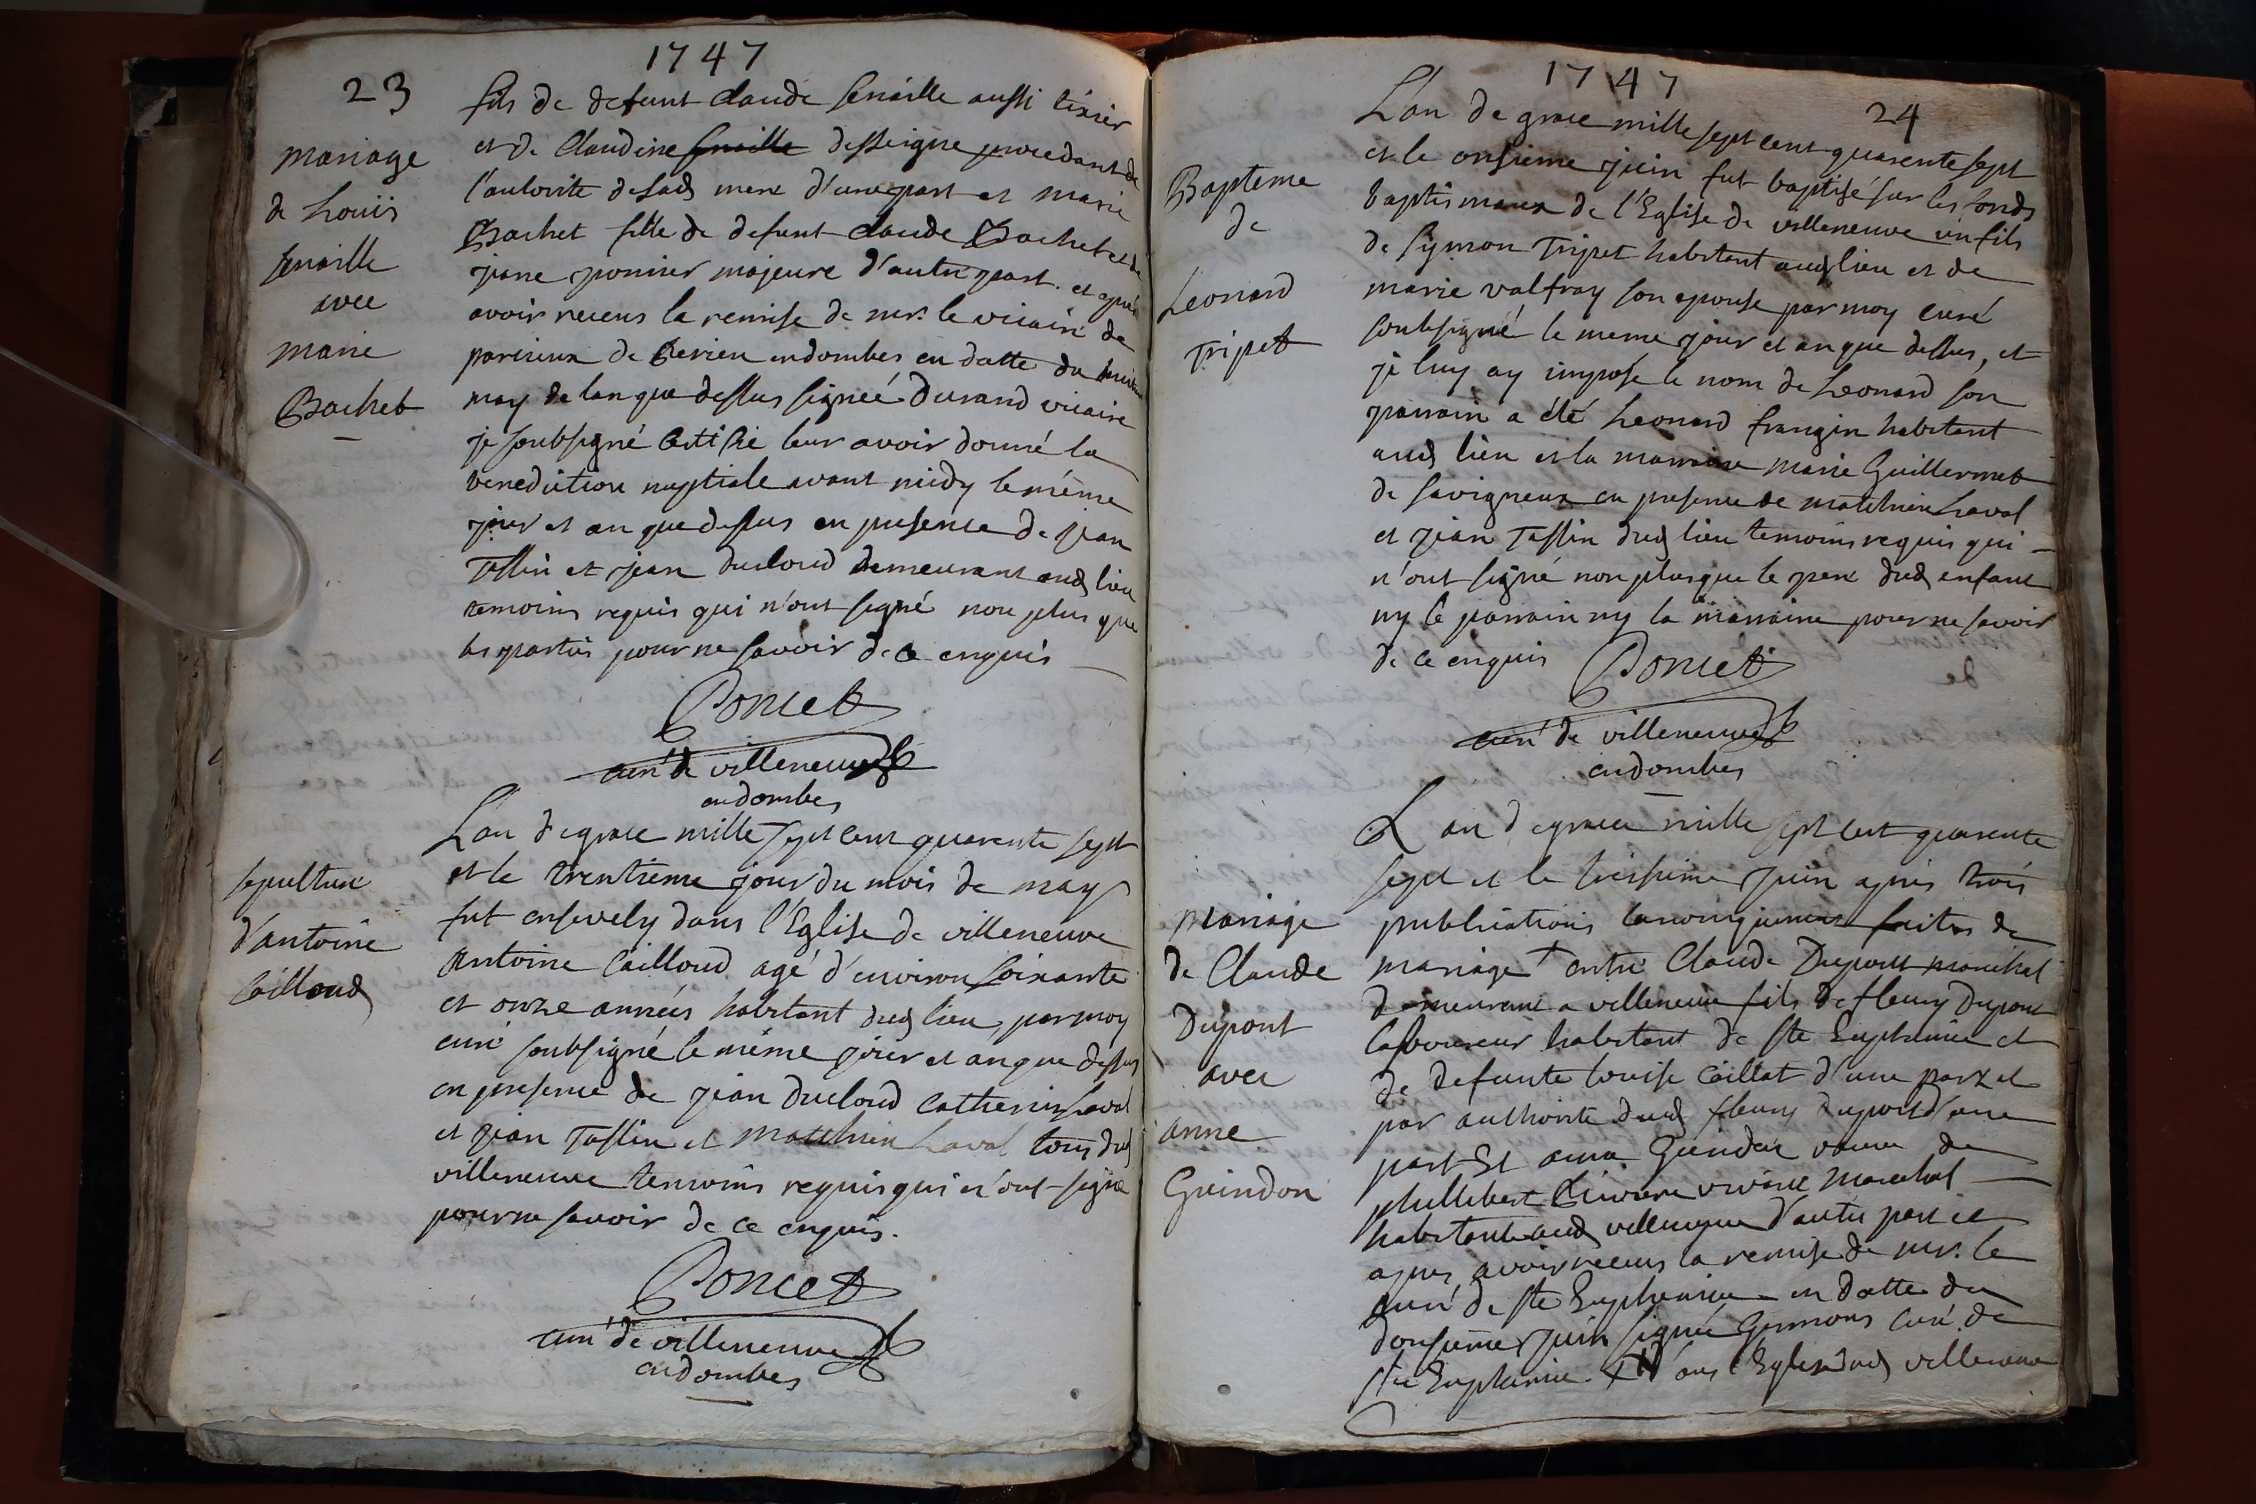 1747
23
mariage
de Louis
senaille
avec
marie
Bachet
fils de defunt claude senaille aussi tixier
et de Claudine desseigne procedant de
l'autorite de sad mere d'une part et marie
Bachet fille de defunt claude Bachet et de
jane ponier majeure d'autre part. et après
avoir receus la remise de mr. le vicaire de
parcieux de en dombes en datte du
may de lan que dessus signée Durand vicaire
je soubsigné certifie leur avoir donné la
benediction nuptiale avant midy le même
jour et an que dessus en presence de jean
Tassin et jean ducloud demeurant aud lieu
temoins requis qui n'ont signé non plus que
les parties pour ne savoir de ce enquis
Poncet
curé de villeneuve
en dombes
sepulture
d'antoine
Cailloud
L'an de grace mille sept cent quarente sept
et le trentieme jour du mois de may
fut ensevely dans l'Eglise de villeneuve
Antoine Cailloud agé d'environ soixante
et onze années habitant dud lieu par moy
curé soubsigné le même jour et an que dessus
en presence de jean Ducloud Catherin Laval
et jean Tassin et Matthieu Laval tous dud
villeneuve temoins requis qui n'ont signé
pour ne savoir de ce enquis.
Poncet
curé de villeneuve
en dombes
1747
24
Bapteme
de
Leonard
Tripet
L'an de grace mille sept cent quarente sept
et le onsieme juin fut baptisé sur les fonds
baptismaux de l'Eglise de villeneuve un fils
de symon Tripet habitant aud lieu et de
marie valfray son epouse par moy curé
soubsigné le meme jour et an que dessus, et
je luy ay impose le nom de Leonard son
parrain a été Leonard frangin habitant
aud lieu et la marraine marie Guillermet
de savigneux en presence de matthieu Laval
et jean Tassin dud lieu temoins requis qui
n'ont signé non plus que le pere dud enfant
ny le parrain ny la marraine pour ne savoir
de ce enquis Poncet
curé de villeneuve
en dombes
Mariage
de Claude
Dupont
avec
anne
Guindon
L'an de grace mille sept cent quarente
sept et le treisieme juin après trois
publications canoniquement faites de
mariage + entre Claude Dupont marechal
demeurant a villeneuve fils de fleury Dupont
laboureur habitant de ste Euphemie et
de defunte louise caillat d'une part et
par authorite dud fleury dupont d'une
part Et anne veuve de
phillibert vivant marechal
habitante aud villeneuve d'autre part et
apres avoir receus la remise de mr. le
curé de ste Euphemie en datte du
donsieme juin signée curé de
ste Euphemie. dans l'Eglise dud villeneuve